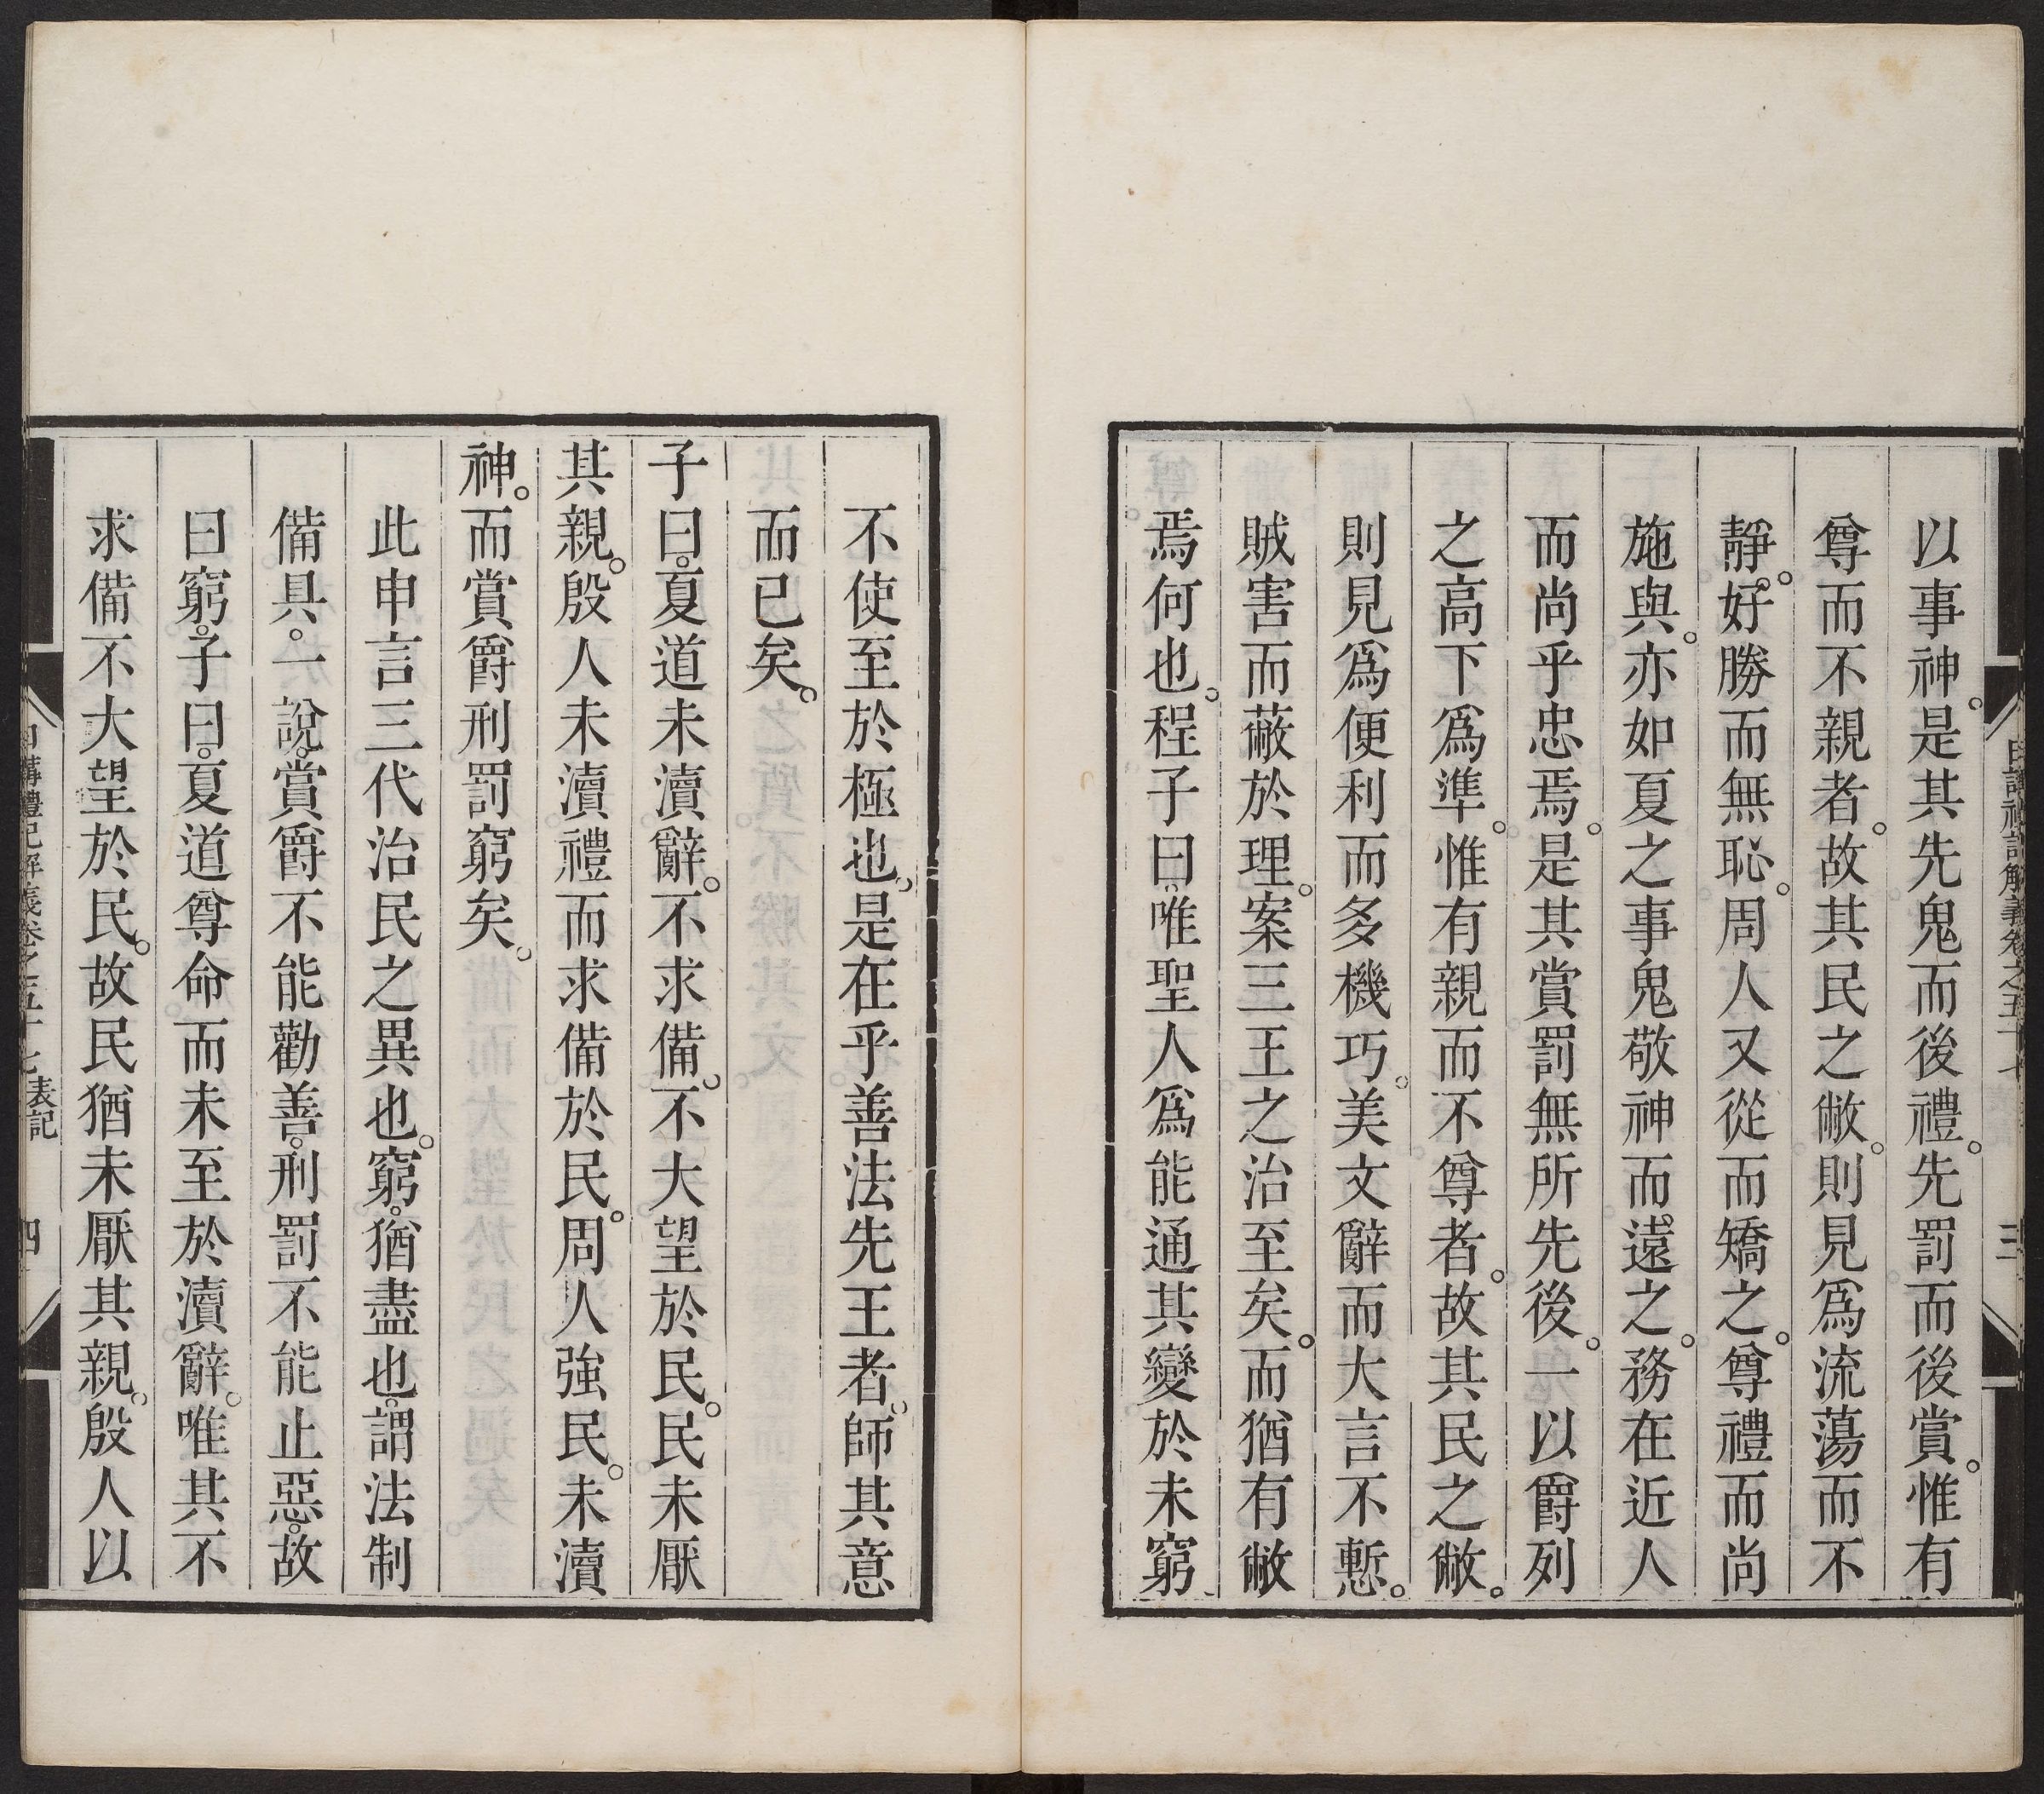 以事神。是其先鬼而後禮。先罰而後賞。惟有
尊而不親者。故其民之敝。則見爲流蕩而不
靜。好勝而無恥。周人又從而矯之。尊禮而尚
施與。亦如夏之事鬼敬神而遠之。務在近人
而尚乎忠焉。是其賞罰無所先後。一以爵列
之高下爲準。惟有親而不尊者。故其民之敝。
則見爲便利而多機巧。美文辭而大言不慙。
賊害而蔽於理。案三王之治至矣。而猶有敝
焉何也。程子曰。唯聖人爲能通其變於未窮
日講禮記解義卷之五十七
三
不使至於極也。是在乎善法先王者。師其意
而已矣。
子曰。夏道未瀆辭。不求備。不大望於民。民未厭
其親。殷人未瀆禮而求備於民。周人強民。未瀆
神。而賞爵刑罰窮矣。
此申言三代治民之異也。窮。猶盡也。謂法制
備具。一說。賞爵不能勸善。刑罰不能止惡。故
曰窮。子曰。夏道尊命而未至於瀆辭。唯其不
求備不大望於民。故民猶未厭其親。殷人以
日講禮記解義卷之五十七 表記
四